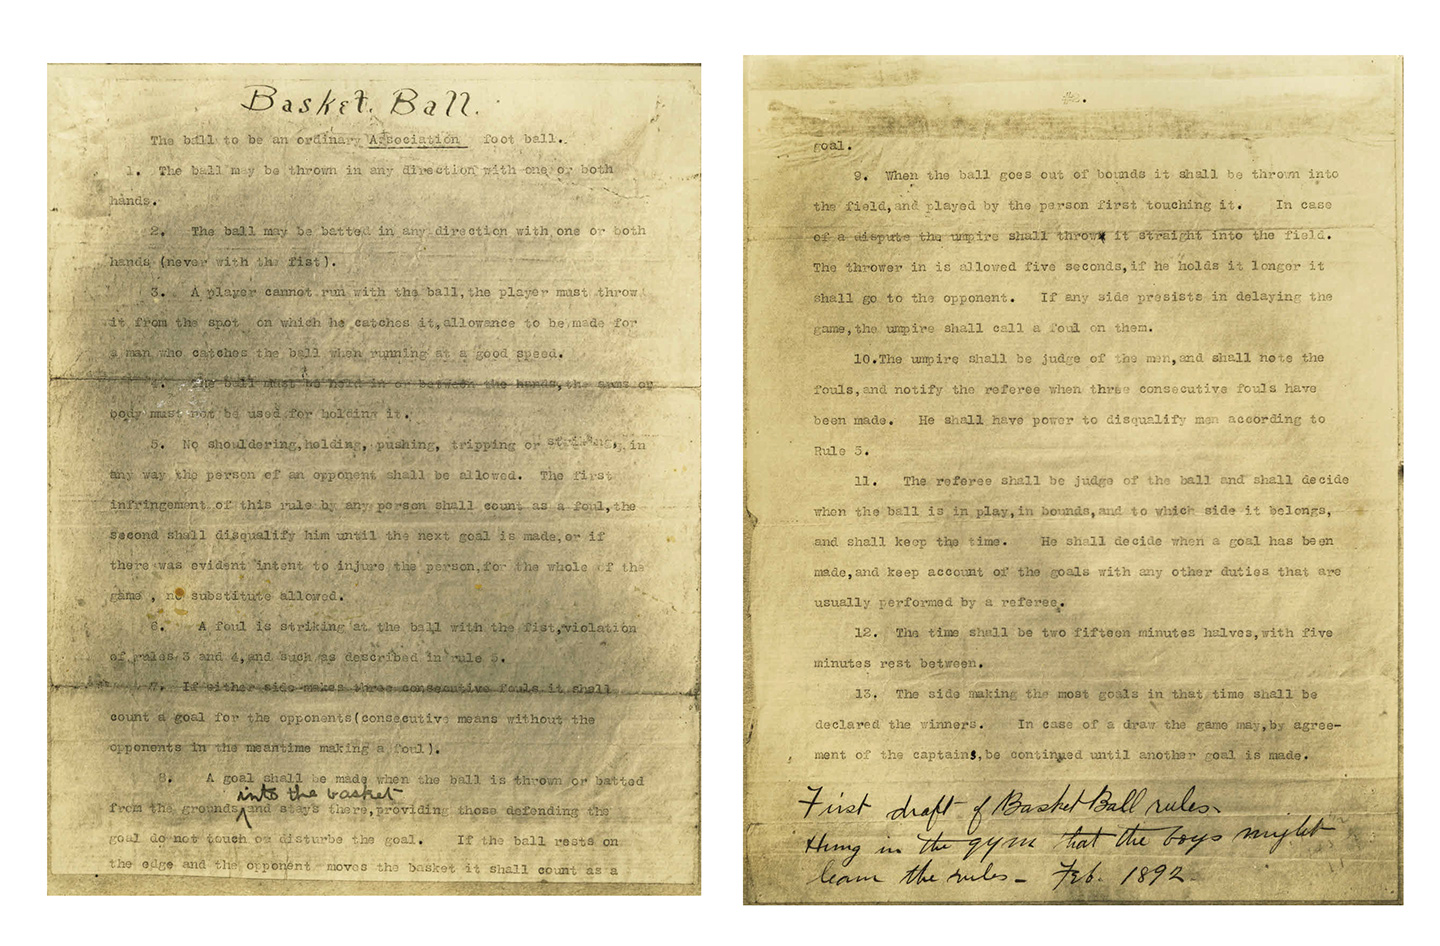 Basket Ball.
The ball to be an ordinary Association foot ball.
1. The ball may be thrown in any direction with one or both
hands.
2. The ball may be batted in any direction with one or both
hands (never with the fist).
3. A player cannot run with the ball,the player must throw
it from the spot on which he catches it,allowance to be made for
a man who catches the ball when running at a good speed.
4. The ball must be held in or between the hands,the arms or
body must not be used for holding it.
5. No shouldering,holding, pushing, tripping or striking, in
any way the person of an opponent shall be allowed. The first
infringement of this rule by any person shall count as a foul,the
second shall disqualify him until the next goal is made,or if
there was evident intent to injure the person,for the whole of the
game , no substitute allowed.
6. A foul is striking at the ball with the fist,violation
of rules 3 and 4,and such as described in rule 5.
7. If either side makes three consecutive fouls it shall
count a goal for the opponents(consecutive means without the
opponents in the meantime making a foul).
8. A goal shall be made when the ball is thrown or batted
into the basket
from the grounds and stays there,providing those defending the
goal do not touch or disturbe the goal. If the ball rests on
the edge and the opponent moves the basket it shall count as a
goal.
9. When the ball goes out of bounds it shall be thrown into
the field,and played by the person first touching it. In case
of a dispute the umpire shall throw it straight into the field.
The thrower in is allowed five seconds,if he holds it longer it
shall go to the opponent. If any side presists in delaying the
game,the umpire shall call a foul on them.
10.The umpire shall be judge of the men,and shall note the
fouls,and notify the referee when three consecutive fouls have
been made. He shall have power to disqualify men according to
Rule 5.
11. The referee shall be judge of the ball and shall decide
when the ball is in play,in bounds,and to which side it belongs,
and shall keep the time. He shall decide when a goal has been
made,and keep account of the goals with any other duties that are
usually performed by a referee.
12. The time shall be two fifteen minutes halves,with five
minutes rest between.
13. The side making the most goals in that time shall be
declared the winners. In case of a draw the game may,by agree-
ment of the captains,be continued until another goal is made.
First draft of Basket Ball rules.
Hung in the gym that the boys might
learn the rules - Feb. 1892